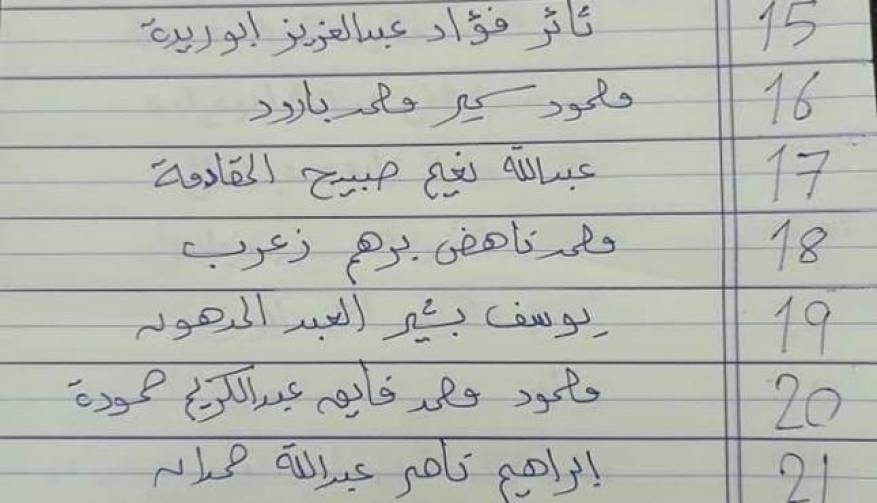 15 ثائر فؤاد عبدالعزيز ابوريدة
16 محمود سمير محمد بارود
17 عبدالله نعيم صبيح المقادمة
18 محمد ناهض برهم زعرب
19 يوسف بشير العبد المدهون
20 محمود محمد فايق عبدالكريم حمودة
21 ابراهيم ناصر عبدالله حمدان